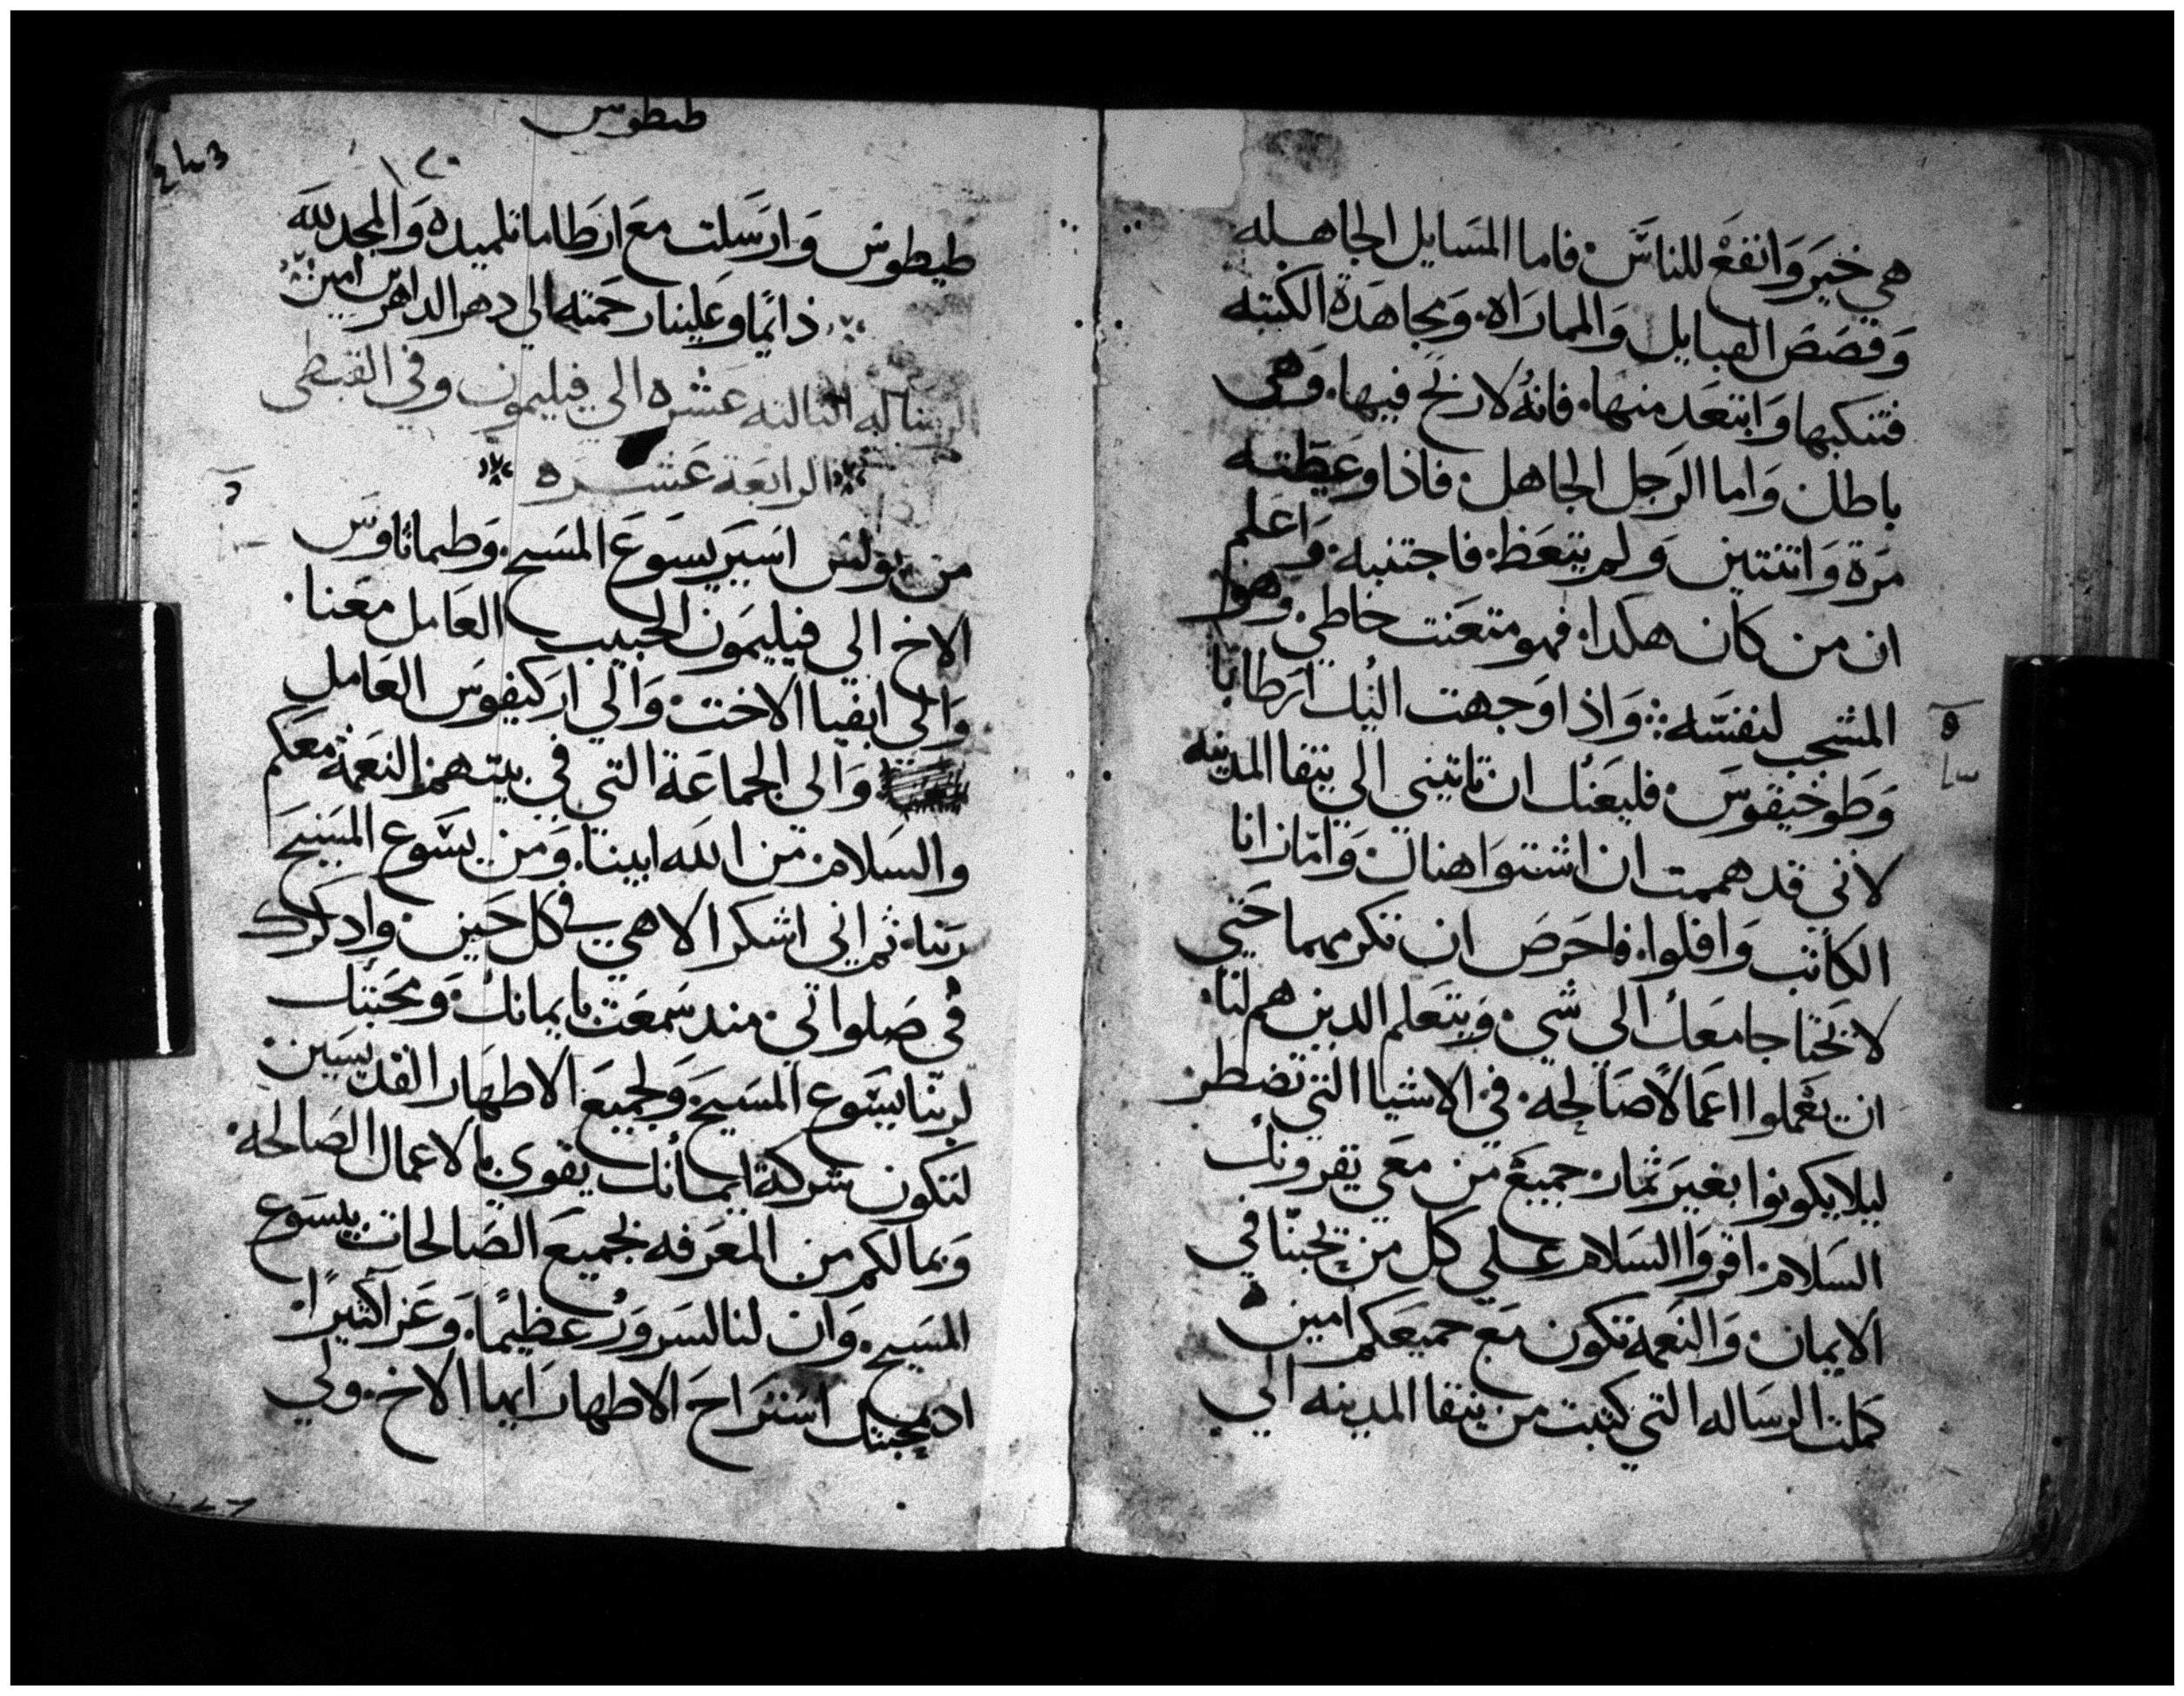 هي خير وانفع للناس فاما المسايل الجاهله
وقصص القبايل والمماراه ومجاهدة الكتبه
فتنكبها وابتعد منها فانه لا ربح فيها وهي
باطله واما الرجل الجاهل فاذا وعظته
مرة واثنتين ولم يتعظ فاجتنبه واعلم
ان من كان هكدا فهو متعنت خاطي وهو
المشجب لنفسه واذا وجهت اليك ارطاما
وطوخيقوس فليعنك ان تاتيني الي نيقا المدينه
لاني قد هممت ان اشتوا هناك واما زانا
الكاتب وافلوا فاحرص ان تكرمهما حتي
لا يحتاجا معك الي شي ويتعلم الدين هم لنا
ان يعملوا اعمالا صالحه في الاشيا التي تضطر
ليلا يكونوا بغير ثمار جميع من معي يقرونك
السلام اقروا السلام علي كل من يحبنا في
الايمان والنعمه تكون مع جميعكم امين
كملت الرساله التي كتبت من نيقا المدينه الي
طيطوس
١٢٠
طيطوس وارسلت مع ارطاما تلميده والمجد لله
دايما وعلينا رحمته الي دهر الداهرين امين
الرساله الثالثه عشره الي فيليمون وفي القبطي
الرابعة عشره
من بولس اسير يسوع المسيح وطيماتاوس
الاخ الي فيليمون الحبيب العامل معنا
والي ابفيا الاخت والي اركيفوس العامل
والي الجماعة التي في بيتهم النعمة معكم
والسلام من الله ابينا ومن يسوع المسيح
ربنا ثم اني اشكر الاهي في كل حين وادكرك
في صلواتي مند سمعت بايمانك ومحبتك
لربنا يسوع المسيح ولجميع الاطهار القديسين
لتكون شركة ايمانك يقوي بالاعمال الصالحه
وبمالكم من المعرفه بجميع الصالحات بيسوع
المسيح وان لنا لسرور عظيما وعزا كثيرا
اد بمحبتك استراح الاطهار ايها الاخ ولي